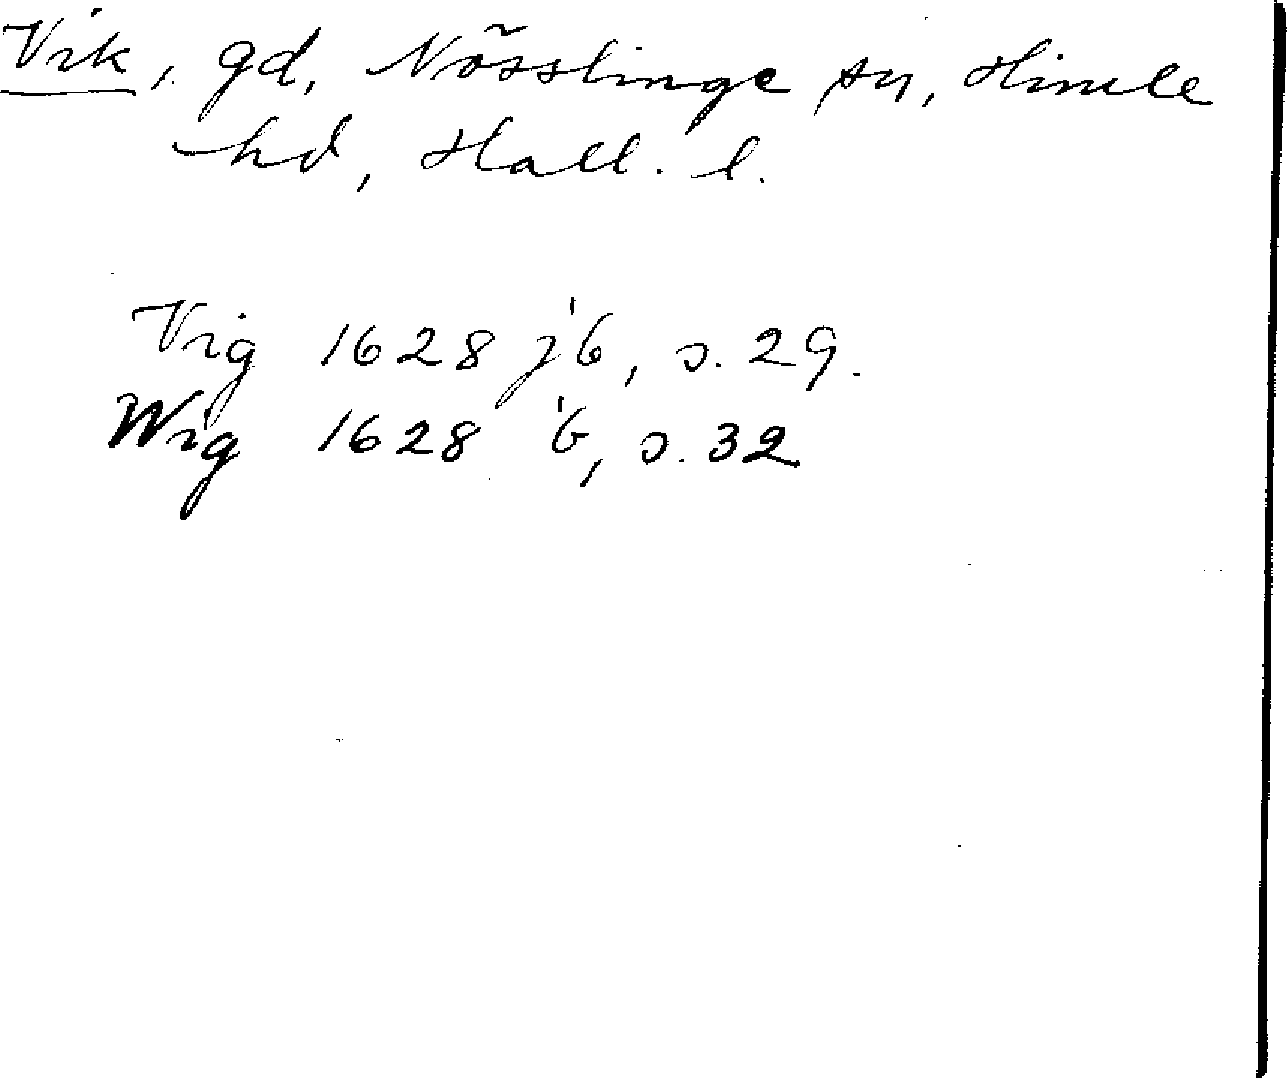 Vik, gd, Nösslinge sn, Himle
hd, Hall. l.
Vig 1628 jb, s. 29.
Wig 1628 ib, s. 32